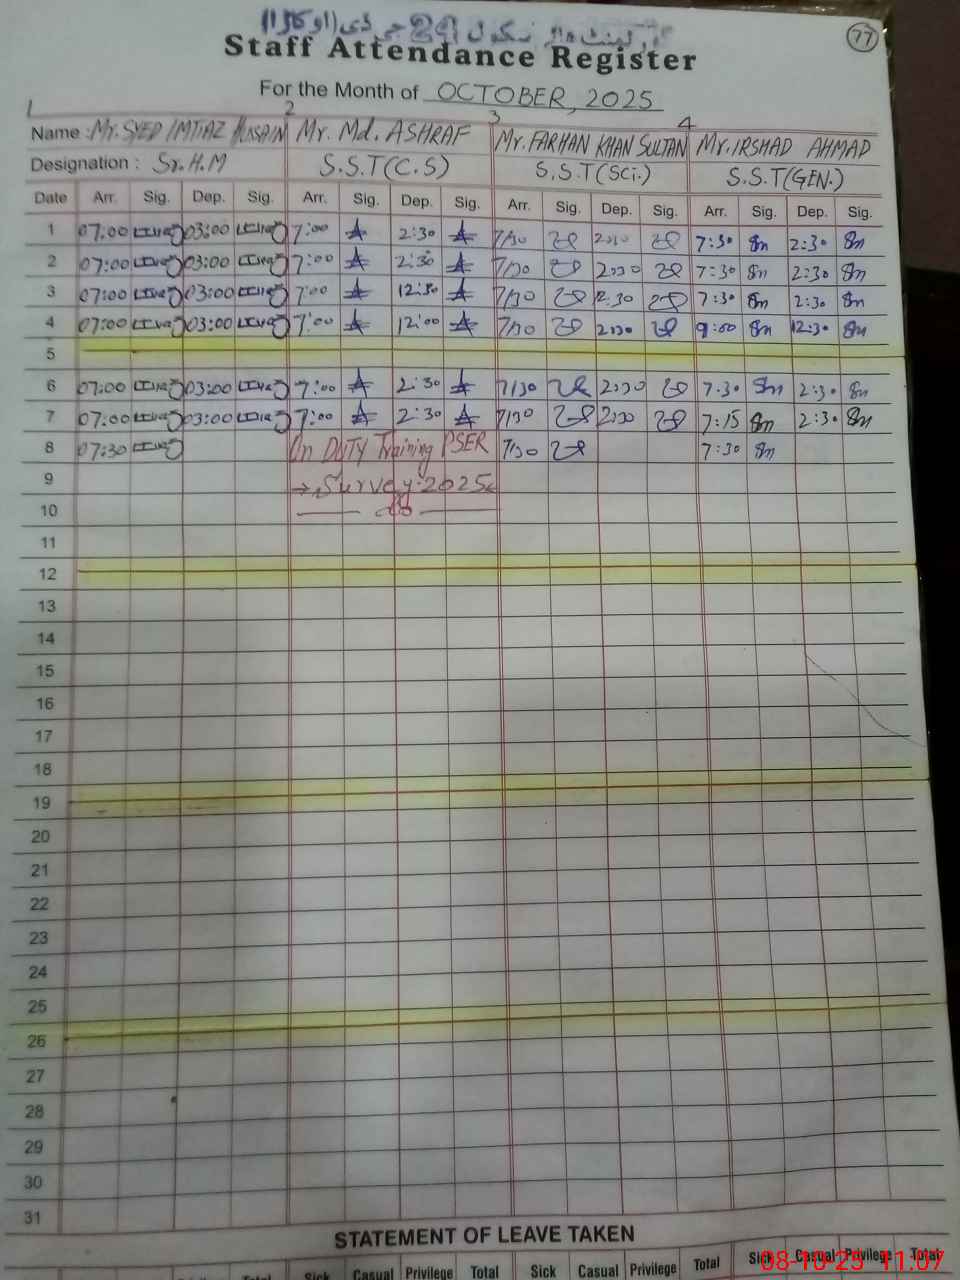 گورنمنٹ ہائی سکول 29 جی ڈی (اوکاڑا)
77
Staff Attendance Register
For the Month of OCTOBER, 2025
1 2 3 4
Name : Mr. SYED IMTIAZ HUSSAIN Mr. Md. ASHRAF Mr. FARHAN KHAN SULTAN Mr. IRSHAD AHMAD
Designation : Sr. H.M S.S.T (C.S) S.S.T (Sci.) S.S.T (GEN.)
Date Arr. Sig. Dep. Sig. Arr. Sig. Dep. Sig. Arr. Sig. Dep. Sig. Arr. Sig. Dep. Sig.
1 07:00 03:00 7:00 2:30 7/30 2:30 7:30 2:30
2 07:00 03:00 7:00 2:30 7/30 2:30 7:30 2:30
3 07:00 03:00 7:00 12:30 7/30 12.30 7:30 2:30
4 07:00 03:00 7:00 12:00 7/30 2:30 9:00 12:30
5
6 07:00 03:00 7:00 2:30 7/30 2:30 7:30 2:30
7 07:00 03:00 7:00 2:30 7/30 2:30 7:15 2:30
8 07:30 On DUTY Training PSER 7/30 7:30
9 → Survey-2025
10
11
12
13
14
15
16
17
18
19
20
21
22
23
24
25
26
27
28
29
30
31
STATEMENT OF LEAVE TAKEN
Sick Casual Privilege Total Sick Casual Privilege Total Sick Casual Privilege Total
08-10-25 11:07